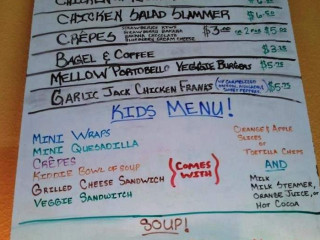 CHICKEN SALAD SLAMMER $6.50
CRÊPES STRAWBERRY KIWI
STRAWBERRY BANANA
BANANA CHOCOLATE
BLUEBERRY CREAM CHEESE
$3.00 OR 2 FOR $5.00
BAGEL & COFFEE $3.25
MELLOW PORTOBELLO VEGGIE BURGERS $5.75
GARLIC JACK CHICKEN FRANKS W/ CARMELIZED ONIONS, MUSHROOMS $5.75
KIDS MENU!
MINI WRAPS
MINI QUESADILLA
CRÊPES
KIDDIE BOWL OF SOUP
GRILLED CHEESE SANDWICH
VEGGIE SANDWICH
(COMES WITH)
ORANGE & APPLE
SLICES
OR
TORTILLA CHIPS
AND
MILK
MILK STEAMER,
ORANGE JUICE, OR
HOT COCOA
SOUP!